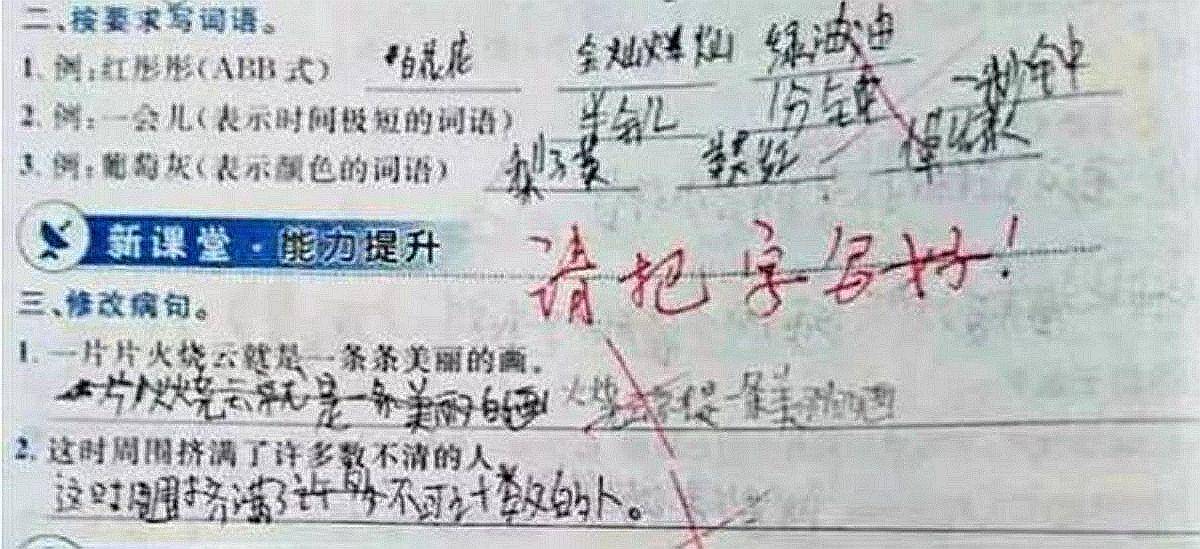 二、按要求写词语。
1. 例:红彤彤(ABB 式) 白花花 金灿灿 绿油油
2. 例:一会儿(表示时间极短的词语) 半会儿 1分钟 一秒钟
3. 例:葡萄灰(表示颜色的词语)
新课堂·能力提升
请把字写好!
三、修改病句。
1. 一片片火烧云就是一条条美丽的画。
一片火烧云就是一条美丽的画 火烧云 是一条美丽的画
2. 这时周围挤满了许多数不清的人。
这时周围挤满了许多不可计数的人。